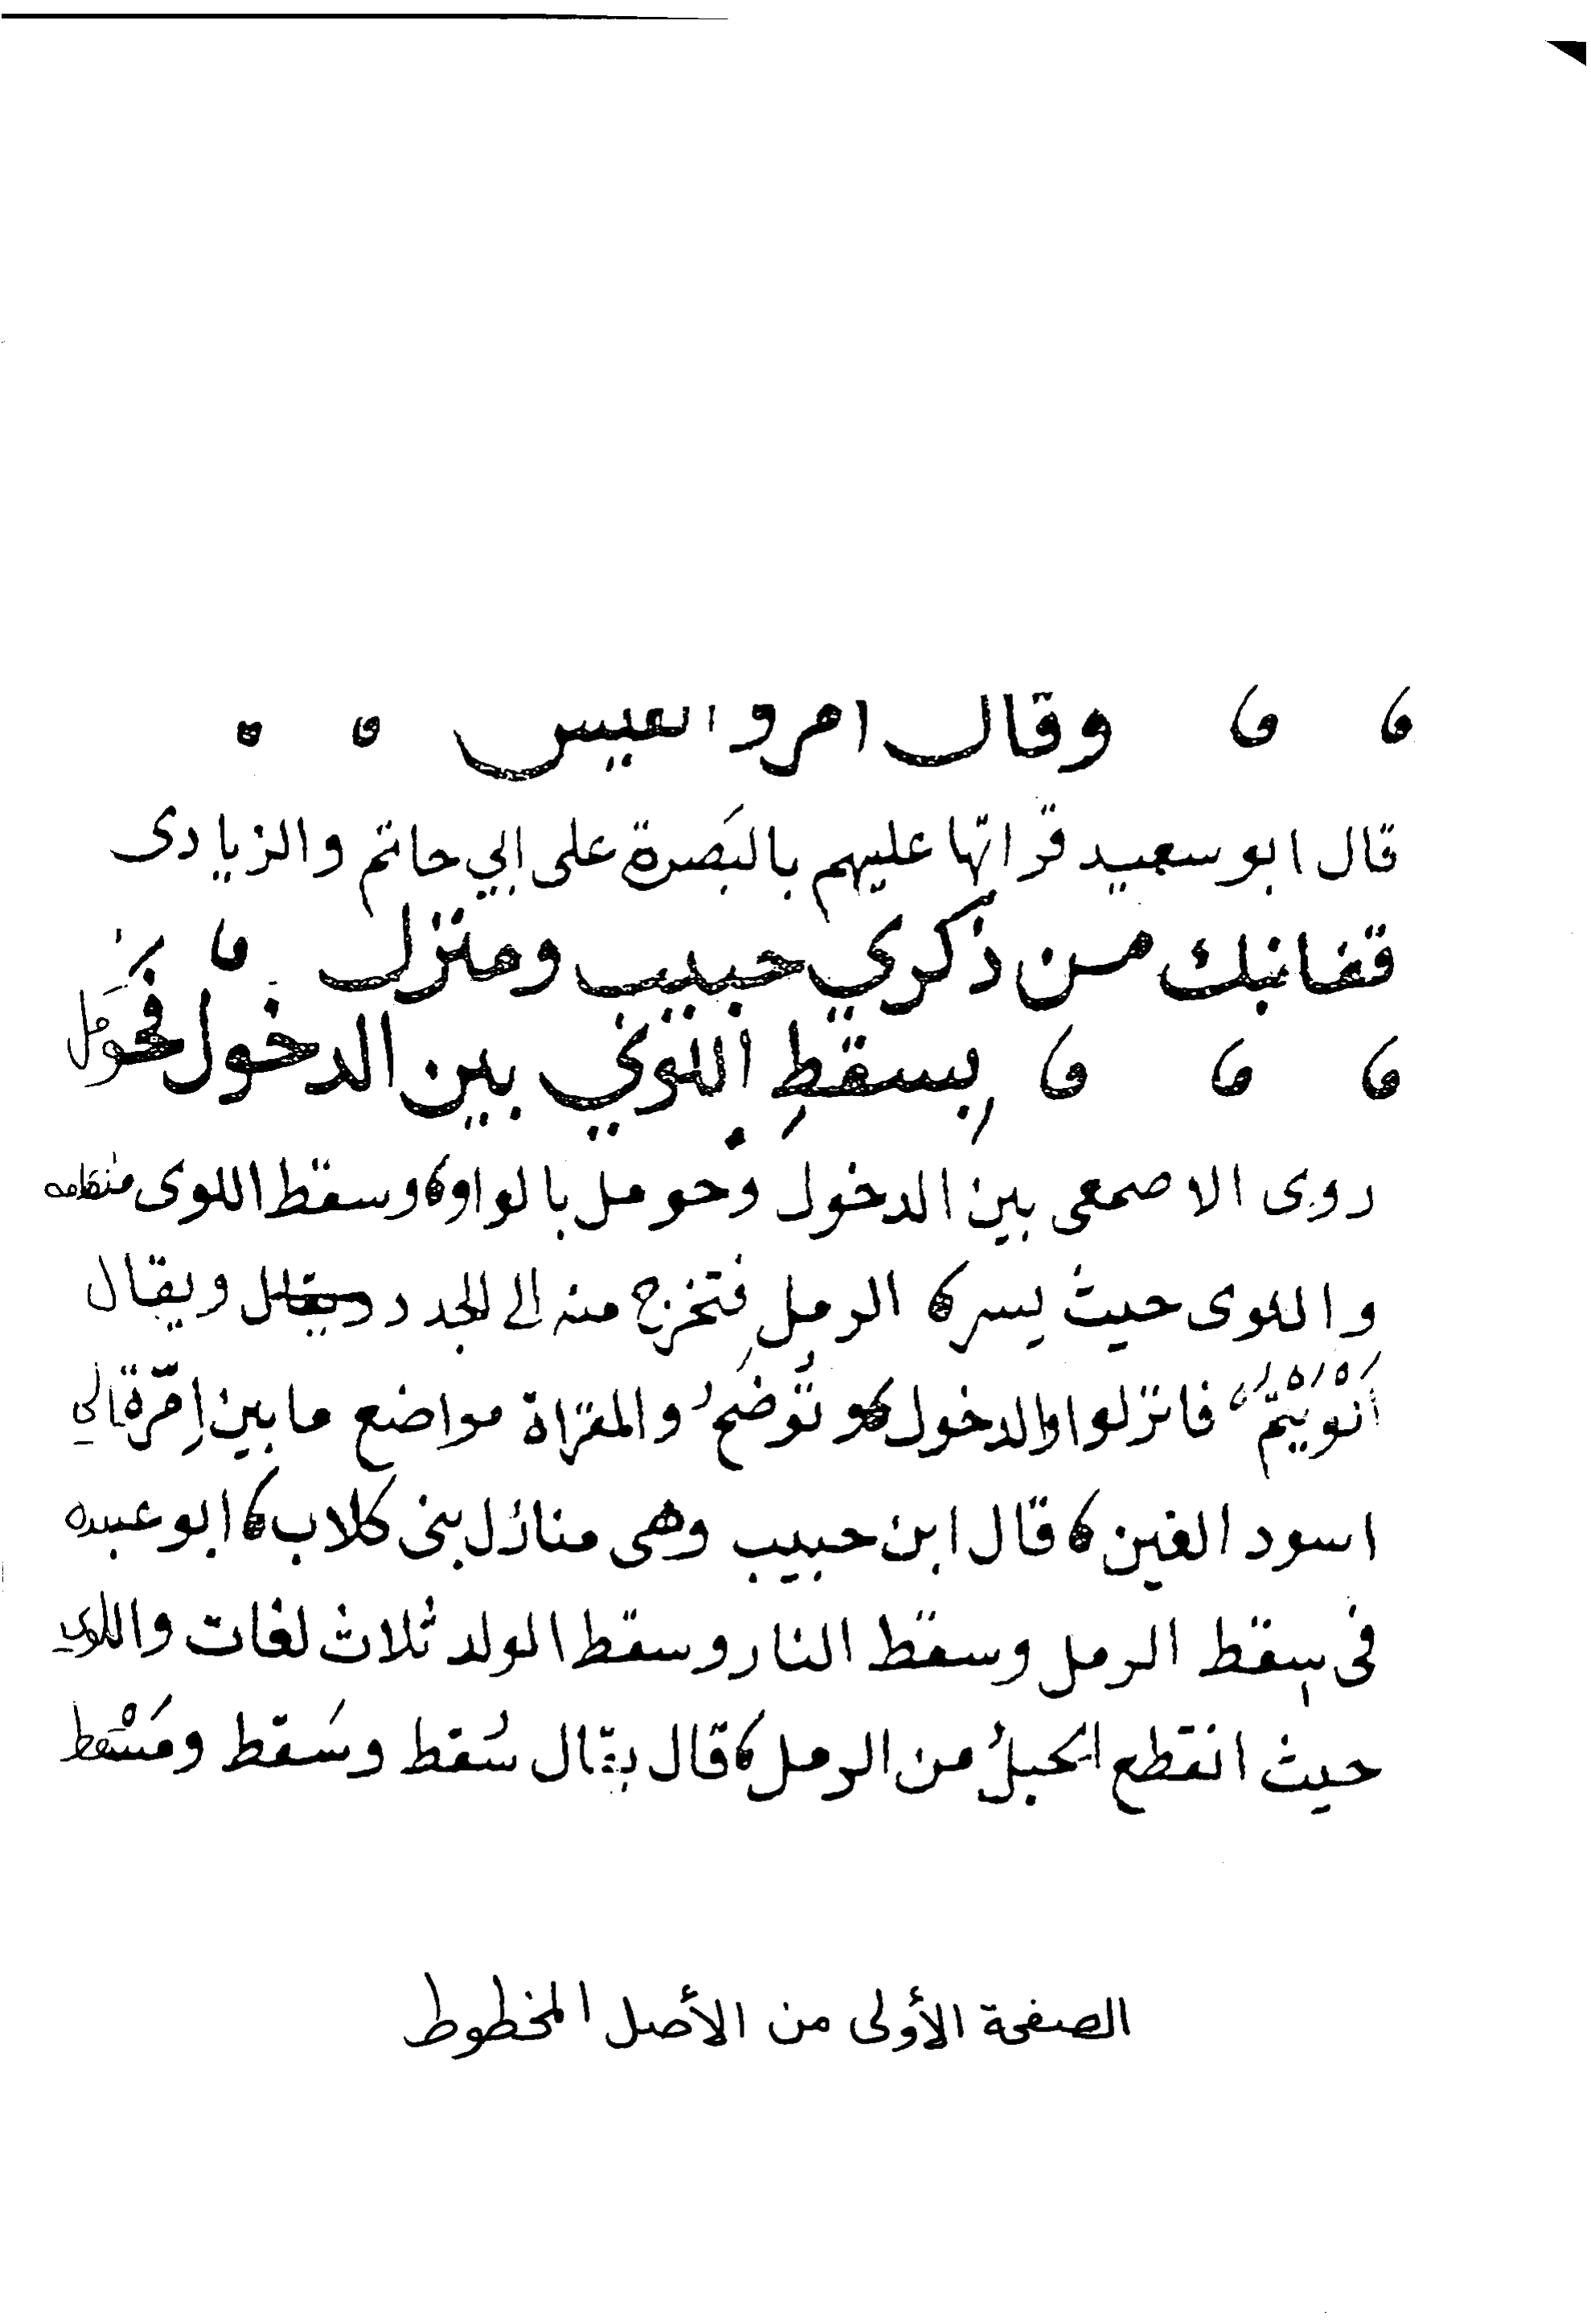 وقال امرو القيس
قال ابو سعيد قراتها عليهم بالبَصرة على ابي حاتم والزيادى
قفا نبك من ذكري حبيب ومنزل
بِسقطِ اللوي بين الدخول فَحَومَل
روى الاصمعى بين الدخول وحومل بالواو وسقط اللوى منقطعه
واللوى حيث يسر الرمل فتخرج منه الى الجدد ويقال
اَلْوَيْتُمْ فانزلوا والدخول وتُوضَحُ والمقراة مواضع ما بين اِمّرة الي
اسود العين قال ابن حبيب وهى منازل بنى كلاب ابو عبيده
فى سِقط الرمل وسقط النار وسقط الولد ثلاث لغات واللوي
حيث انقطع الحبلُ من الرمل قال يقال سُقط وسَقط ومَسْقط
الصفحة الأولى من الأصل المخطوط